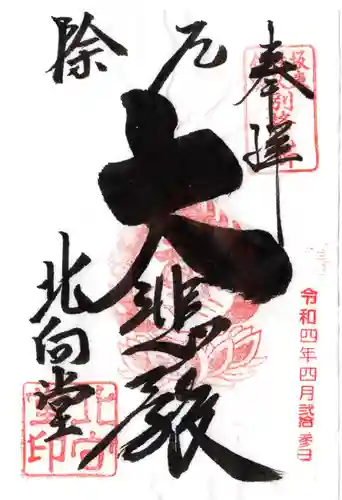 奉拝
令和四年四月弐拾参日
厄除
大悲殿
北向堂